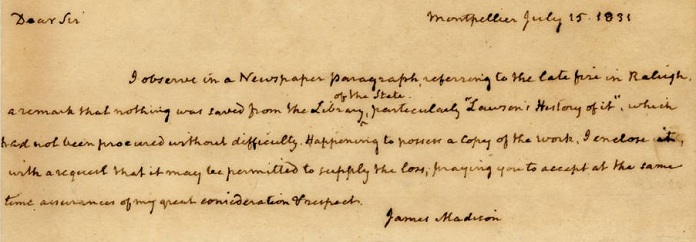 Dear Sir
Montpellier July 15. 1831
I observe in a Newspaper paragraph, referring to the late fire in Raleigh,
of the State
a remark that nothing was saved from the Library, particularly "Lawson's History of it", which
had not been procured without difficulty. Happening to possess a copy of the work, I enclose it,
with a request that it may be permitted to supply the loss; praying you to accept at the same
time assurances of my great consideration & respect.
James Madison